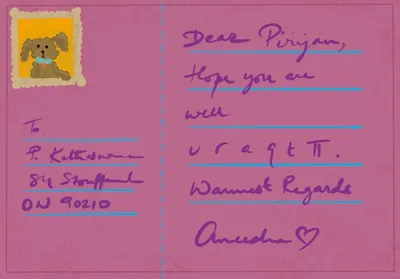 To,
P. Ketheswaran
84 Stouffend
ON 90210
Dear Pirijan,
Hope you are
well.
u r a q t π.
Warmest Regards